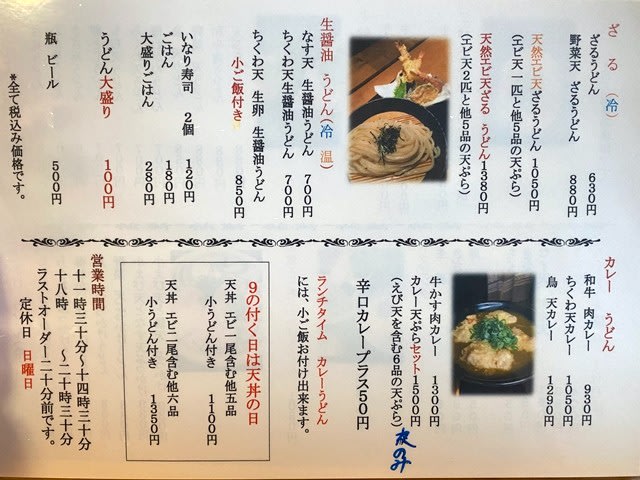 ざる(冷)
ざるうどん 630円
野菜天 ざるうどん 880円
天然エビ天ざるうどん 1050円
(エビ天一匹と他5品の天ぷら)
天然エビ天ざる うどん 1380円
(エビ天2匹と他5品の天ぷら)
生醤油 うどん(冷 温)
なす天 生醤油うどん 700円
ちくわ天生醤油うどん 700円
ちくわ天 生卵 生醤油うどん
小ご飯付き 850円
いなり寿司 2個 120円
ごはん 180円
大盛りごはん 280円
うどん大盛り 100円
瓶 ビール 500円
*全て税込み価格です。
カレー うどん
和牛 肉カレー 930円
ちくわ天カレー 1050円
鳥 天カレー 1290円
牛かす肉カレー 1300円
カレー天ぷらセット1500円
(えび天を含む6品の天ぷら)
夜のみ
辛口カレープラス50円
ランチタイム カレーうどん
には、小ご飯お付け出来ます。
9の付く日は天丼の日
天丼 エビ一尾含む他五品
小うどん付き 1100円
天丼 エビ二尾含む他六品
小うどん付き 1350円
営業時間
十一時三十分~十四時三十分
十八時 ~二十時三十分
ラストオーダー二十分前です。
定休日 日曜日